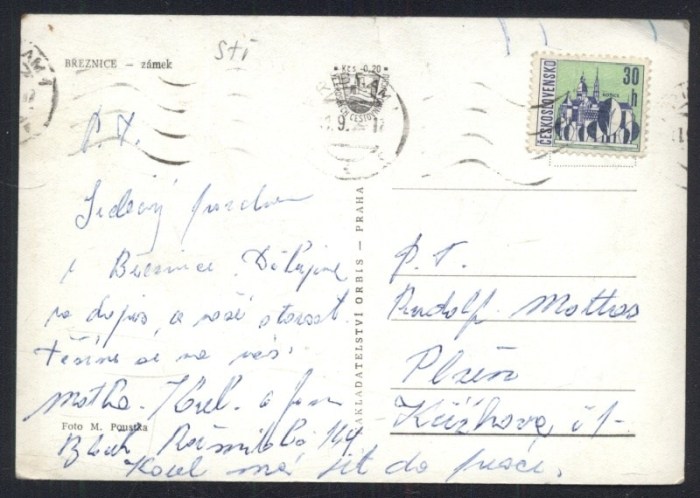 BŘEZNICE — zámek
Stř
Kčs -0,20
ČESKOSLOVENSKO
30 h
P. T.
Srdečný pozdrav
z Březnice. Děkujeme
za dopis, a vaší starost.
Těšíme se na vás.
matka. Karel. a
Foto M. Poustka
144
Karel má jít do práce.
NAKLADATELSTVÍ ORBIS — PRAHA
P. T.
Rudolf
Plzeň
Křížkova, č 1-